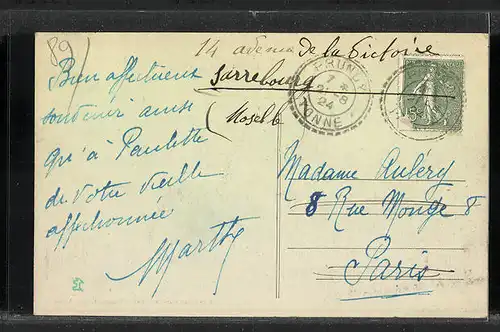 89
14 avenue de la Victoire
Sarrebourg
(Moselle
BRUN
7 *
-8
24
YONNE
15c
Bien affectueux
souvenir ainsi
qu'à Paulette
de votre vieille
affectionnée
Marthe
Madame Aubéry
8 Rue Monge 8
Paris